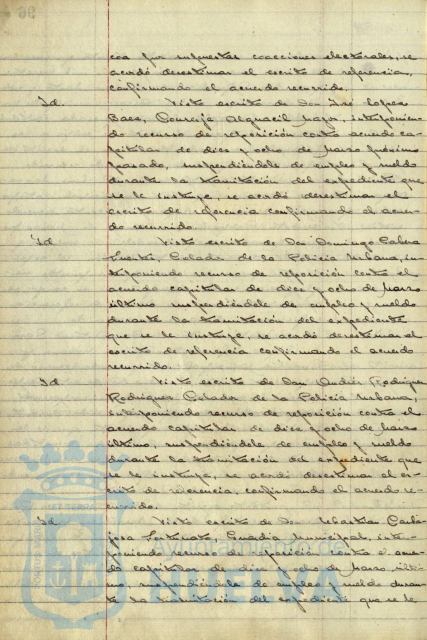 cos por supuestas coacciones electorales, se
acordó desestimar el escrito de referencia,
confirmando el acuerdo recurrido.
Id. Visto escrito de Don José Lopez
Baes, Conserje Alguacil Mayor, interponien
do recurso de reposición contra acuerdo ca-
pitular de diez y ocho de Marzo próximo
pasado, suspendiéndole de empleo y sueldo
durante la tramitación del expediente que
se le instruye, se acordó desestimar el
escrito de referencia confirmando el acuer-
do recurrido.
Id Visto escrito de Don Domingo
Fuentes, Celador de la Policia Urbana, in-
terponiendo recurso de reposición contra el
acuerdo capitular de diez y ocho de Marzo
último suspendiéndole de empleo y sueldo
durante la tramitación del expediente
que se le instruye, se acordó desestimar el
escrito de referencia confirmando el acuerdo
recurrido.
Id Visto escrito de Don Andrés Rodriguez
Rodriguez Celador de la Policia Urbana,
interponiendo recurso de reposición contra el
acuerdo capitular de diez y ocho de Marzo
último, suspendiéndole de empleo y sueldo
durante la tramitación del expediente que
se le instruye, se acordó desestimar el es-
crito de referencia, confirmando el acuerdo re-
currido.
Id. Visto escrito de Don Sebastián
Guardia Municipal, inter-
poniendo recurso de reposición contra el acuer-
do capitular de diez y ocho de Marzo últi-
mo, suspendiéndole de empleo y sueldo duran-
te la tramitación del expediente que se le